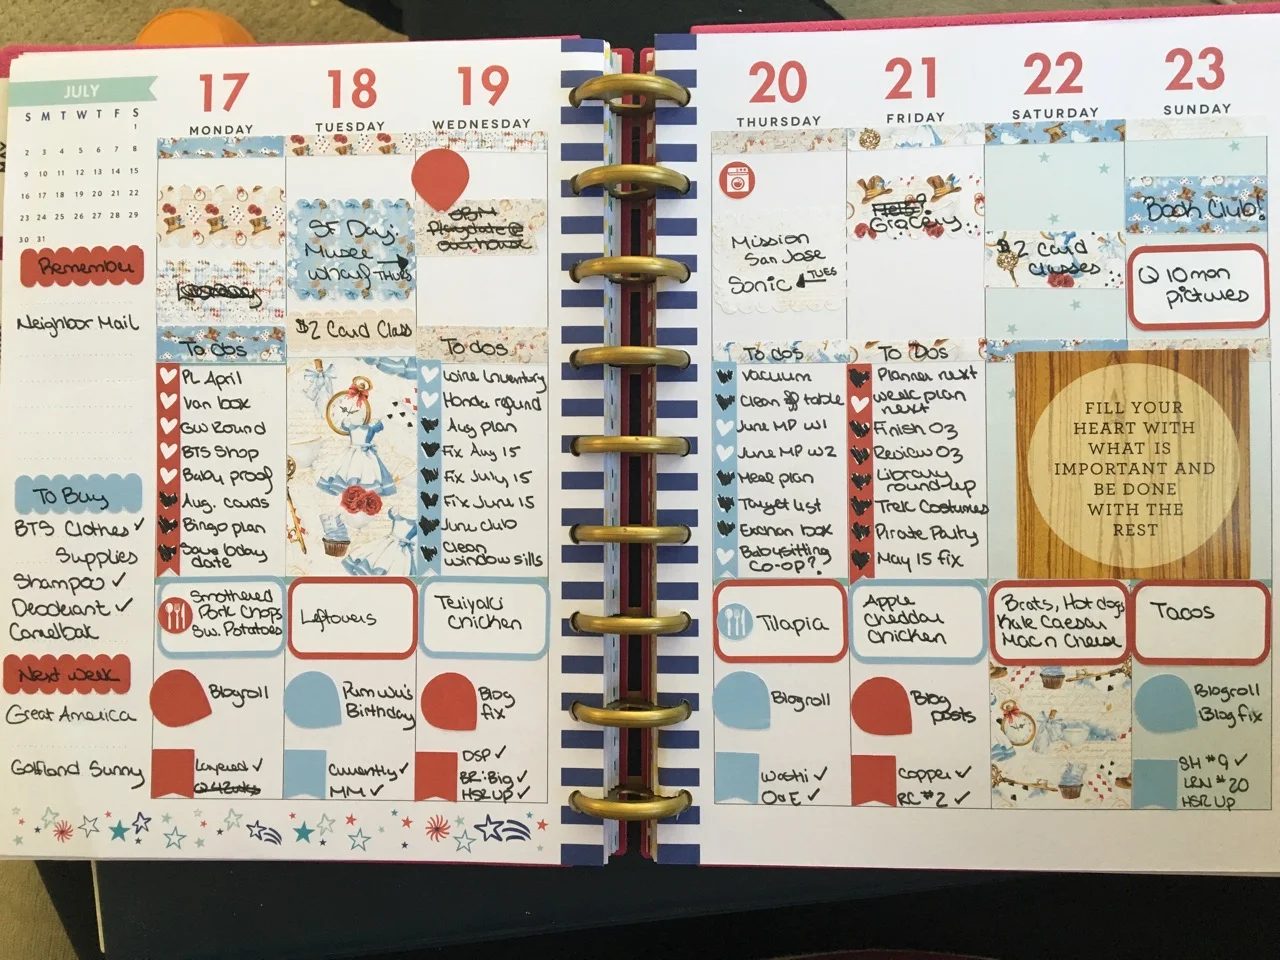 JULY
S M T W T F S
1
2 3 4 5 6 7 8
9 10 11 12 13 14 15
16 17 18 19 20 21 22
23 24 25 26 27 28 29
30 31
Remember
Neighbor Mail
To Buy
BTS Clothes ✓
Supplies
Shampoo ✓
Deodorant ✓
Camelbak
Next week
Great America
Golfland Sunny
17
MONDAY
To dos
PL April
Van box
GW Round
BTS Shop
Baby proof
Aug. cards
Bingo plan
Save today
date
Smothered
Pork Chops
Sw. Potatoes
Blogroll
Layered ✓
18
TUESDAY
SF Day:
Musee
Wharf THURS
$2 Card Class
Leftovers
Birthday
Currently ✓
MM ✓
19
WEDNESDAY
Playdate @
our house
To dos
Wire Inventory
Honda refund
Aug plan
Fix Aug 15
Fix July 15
Fix June 15
June club
Clean
window sills
Teriyaki
Chicken
Blog
fix
DSP ✓
BR: Big ✓
HSR UP ✓
20
THURSDAY
Mission
San Jose
Sonic TUES
To dos
Vacuum
Clean off table
June MP W1
June MP W2
Meal plan
Target list
Exchan box
Babysitting
Co-op?
Tilapia
Blogroll
Washi ✓
O&E ✓
21
FRIDAY
Grocery
To Dos
Planner next
week plan
next
Finish 03
Review 03
Library
round-up
Trek Costumes
Pirate Party
May 15 fix
Apple
Cheddar
Chicken
Blog
posts
Copper ✓
RC #2 ✓
22
SATURDAY
$2 Card
Classes
Brats, Hot dogs
Kale Caesar
Mac n Cheese
23
SUNDAY
Book Club!
Q 10 mon
pictures
FILL YOUR
HEART WITH
WHAT IS
IMPORTANT AND
BE DONE
WITH THE
REST
Tacos
Blogroll
Blog fix
SH #9 ✓
LRN #20
HSR UP